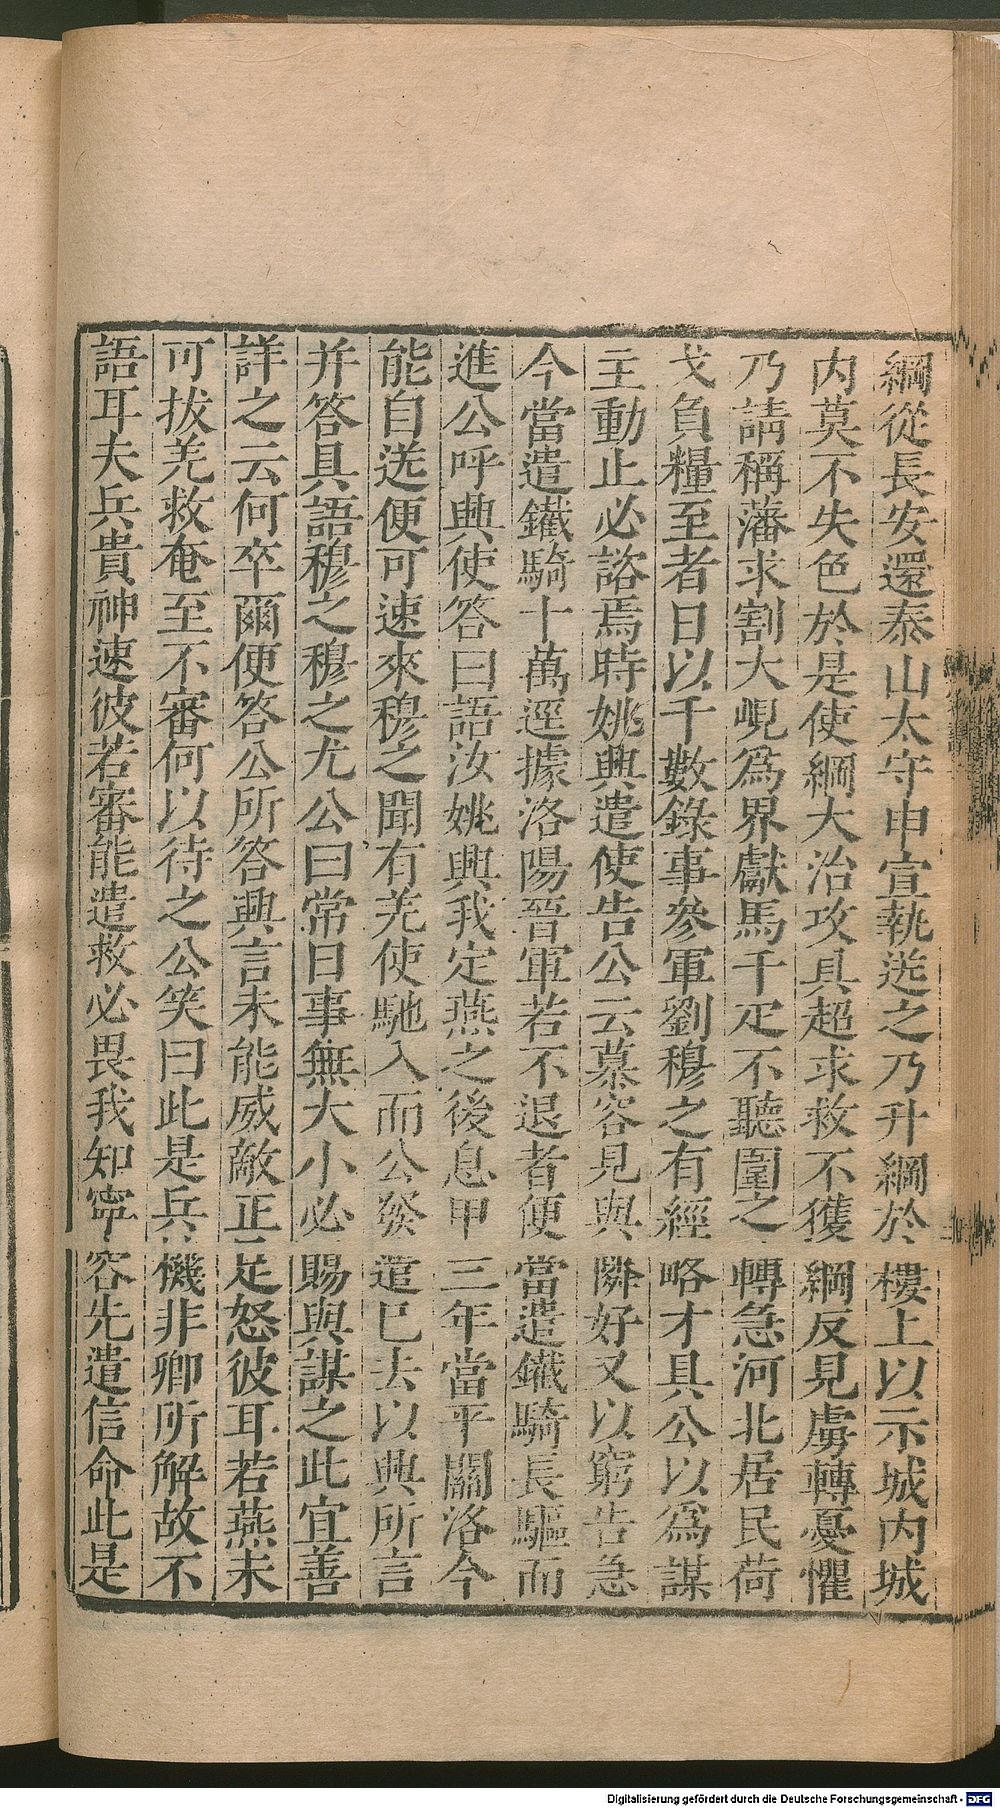 綱從長安還泰山太守申宣執送之乃升綱於樓上以示城内城
内莫不失色於是使綱大治攻具超求救不獲綱反見虜轉憂懼
乃請稱藩求割大峴為界獻馬千疋不聽圍之轉急河北居民荷
戈負糧至者日以千數錄事參軍劉穆之有經略才具公以為謀
主動止必諮焉時姚興遣使告公云慕容見與隣好又以窮告急
今當遣鐵騎十萬逕據洛陽晉軍若不退者便當遣鐵騎長驅而
進公呼興使答曰語汝姚興我定燕之後息甲三年當平關洛今
能自送便可速來穆之聞有羌使馳入而公發遣已去以興所言
并答具語穆之穆之尤公曰常日事無大小必賜與謀之此宜善
詳之云何卒爾便答公所答興言未能威敵正足怒彼耳若燕未
可拔羌救奄至不審何以待之公笑曰此是兵機非卿所解故不
語耳夫兵貴神速彼若審能遣救必畏我知寧容先遣信命此是
Digitalisierung gefördert durch die Deutsche Forschungsgemeinschaft - DFG